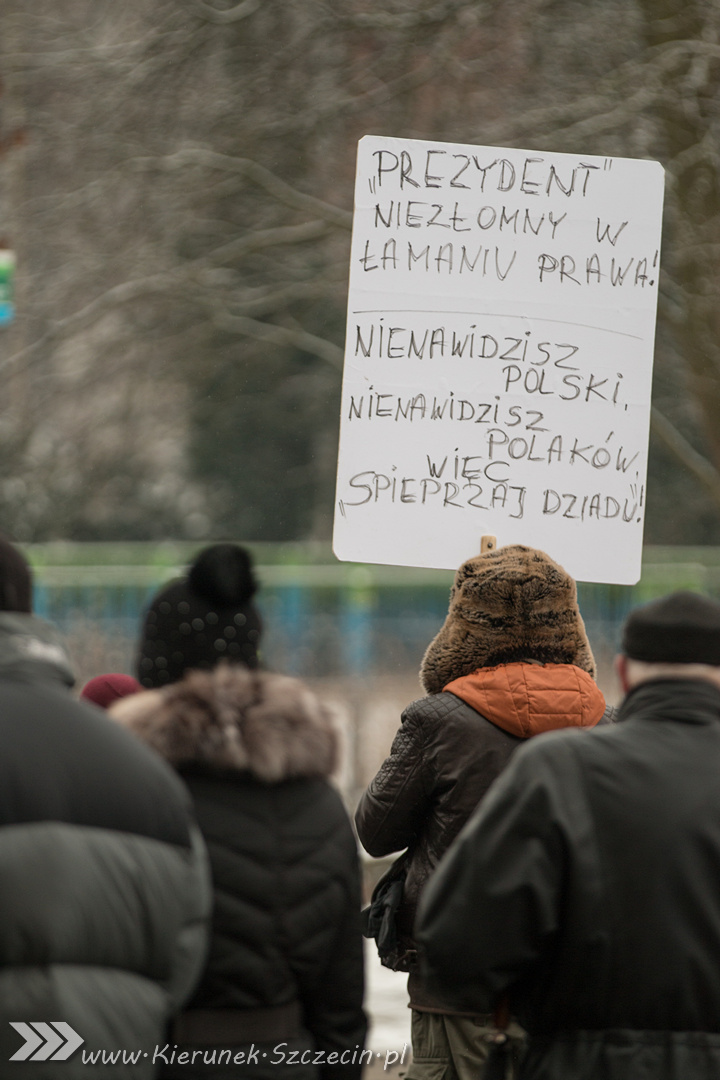 „PREZYDENT"
NIEZŁOMNY W
ŁAMANIU PRAWA!
NIENAWIDZISZ
POLSKI,
NIENAWIDZISZ
POLAKÓW,
WIĘC
„SPIEPRZAJ DZIADU"!
www.Kierunek.Szczecin.pl